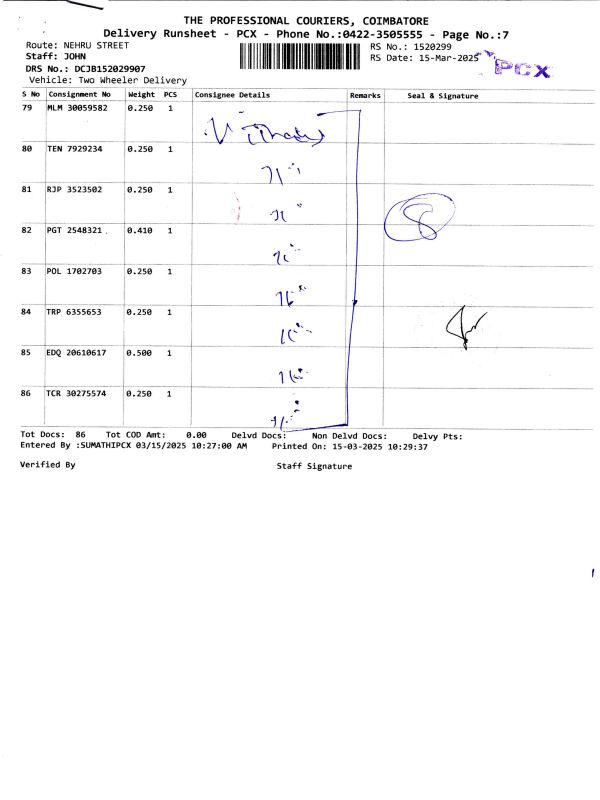 THE PROFESSIONAL COURIERS, COIMBATORE
Delivery Runsheet - PCX - Phone No.:0422-3505555 - Page No.:7
Route: NEHRU STREET RS No.: 1520299
Staff: JOHN RS Date: 15-Mar-2025
DRS No.: DCJB152029907
PCX
Vehicle: Two Wheeler Delivery
S No Consignment No Weight PCS Consignee Details Remarks Seal & Signature
79 MLM 30059582 0.250 1
80 TEN 7929234 0.250 1
81 RJP 3523502 0.250 1
82 PGT 2548321 0.410 1
8
83 POL 1702703 0.250 1
84 TRP 6355653 0.250 1
85 EDQ 20610617 0.500 1
86 TCR 30275574 0.250 1
Tot Docs: 86 Tot COD Amt: 0.00 Delvd Docs: Non Delvd Docs: Delvy Pts:
Entered By :SUMATHIPCX 03/15/2025 10:27:00 AM Printed On: 15-03-2025 10:29:37
Verified By Staff Signature